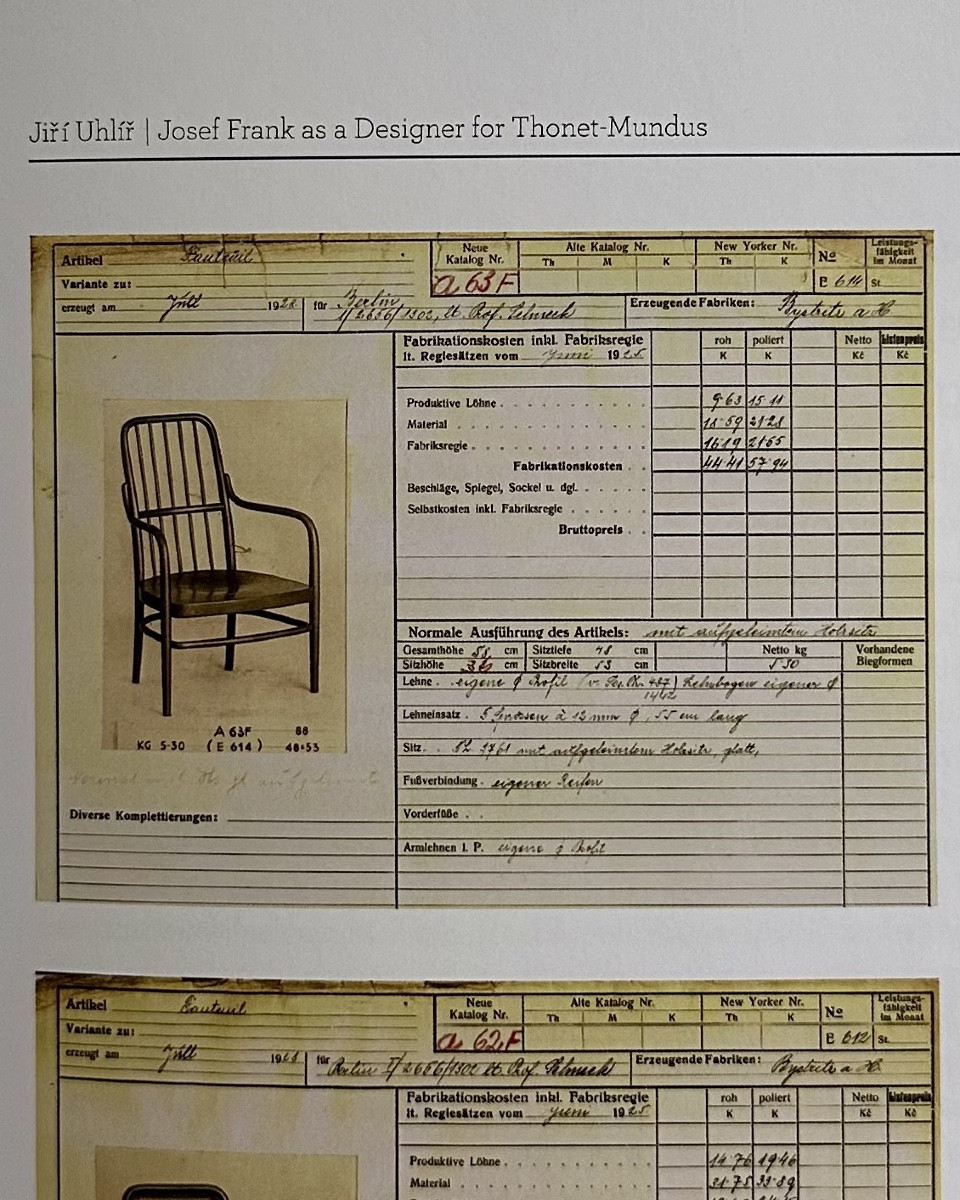 Jiří Uhlíř | Josef Frank as a Designer for Thonet-Mundus
Artikel Fauteuil
Variante zu:
erzeugt am Juli 1928 für Berlin
I/2656/1302, lt. Prof. Schneck
Neue Katalog Nr. A 63 F
Alte Katalog Nr.
Th M K
New Yorker Nr.
Th K
No
E 614
Leistungs-
fähigkeit
im Monat
St.
Erzeugende Fabriken: Bystritz a H.
Fabrikationskosten inkl. Fabriksregie
lt. Regiesätzen vom Juni 1925
roh poliert Netto Listenpreis
K K Kč Kč
Produktive Löhne 9·63 15·11
Material 18·59 21·28
Fabriksregie 16·19 21·55
Fabrikationskosten 44·41 57·94
Beschläge, Spiegel, Sockel u. dgl.
Selbstkosten inkl. Fabriksregie
Bruttopreis
Normale Ausführung des Artikels: mit aufgeleimtem Holzsitz
Gesamthöhe cm Sitztiefe 48 cm Netto kg Vorhandene
Sitzhöhe cm Sitzbreite 53 cm 5·30 Biegformen
Lehne eigene ϕ Profil Lehnbogen eigener ϕ
Lehneinsatz 5 Sprossen à 12 mm ϕ, 55 cm lang
Sitz 3761 mit aufgeleimtem Holzsitz, glatt,
Fußverbindung eigener Reifen
Vorderfüße
Armlehnen i. P. eigene ϕ Profil
A 63F 88
KG 5-30 (E 614) 48·53
Diverse Komplettierungen:
Artikel Fauteuil
Variante zu:
erzeugt am Juli 1928 für Berlin I/2656/1302 lt. Prof. Schneck
Neue Katalog Nr. A 62 F
Alte Katalog Nr.
Th M K
New Yorker Nr.
Th K
No
E 612
Leistungs-
fähigkeit
im Monat
St.
Erzeugende Fabriken: Bystritz a H.
Fabrikationskosten inkl. Fabriksregie
lt. Regiesätzen vom Juni 1925
roh poliert Netto Listenpreis
K K Kč Kč
Produktive Löhne 14·76 19·46
Material 31·75 33·89